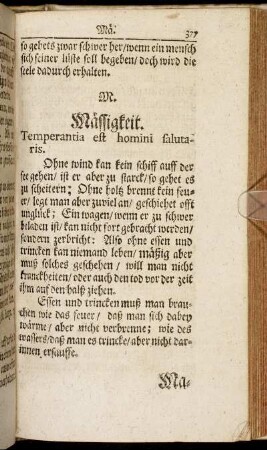 Mä. 377
so gehets zwar schwer her/wenn ein mensch
sich seiner lüste soll begeben/doch wird die
seele dadurch erhalten.
M.
Mässigkeit.
Temperantia est homini saluta-
ris.
Ohne wind kan kein schiff auff der
see gehen/ ist er aber zu starck/so gehet es
zu scheitern; Ohne holtz brennt kein feu-
er/ legt man aber zuviel an/ geschiehet offt
unglück; Ein wagen/ wenn er zu schwer
beladen ist/kan nicht fort gebracht werden/
sondern zerbricht: Also ohne essen und
trincken kan niemand leben/ mäßig aber
muß solches geschehen/ will man nicht
kranckheiten/ oder auch den tod vor der zeit
ihm auf den halß ziehen.
Essen und trincken muß man brau-
chen wie das feuer/ daß man sich dabey
wärme/ aber nicht verbrenne; wie des
wassers/daß man es trincke/aber nicht dar-
innen ersauffe.
Mä-